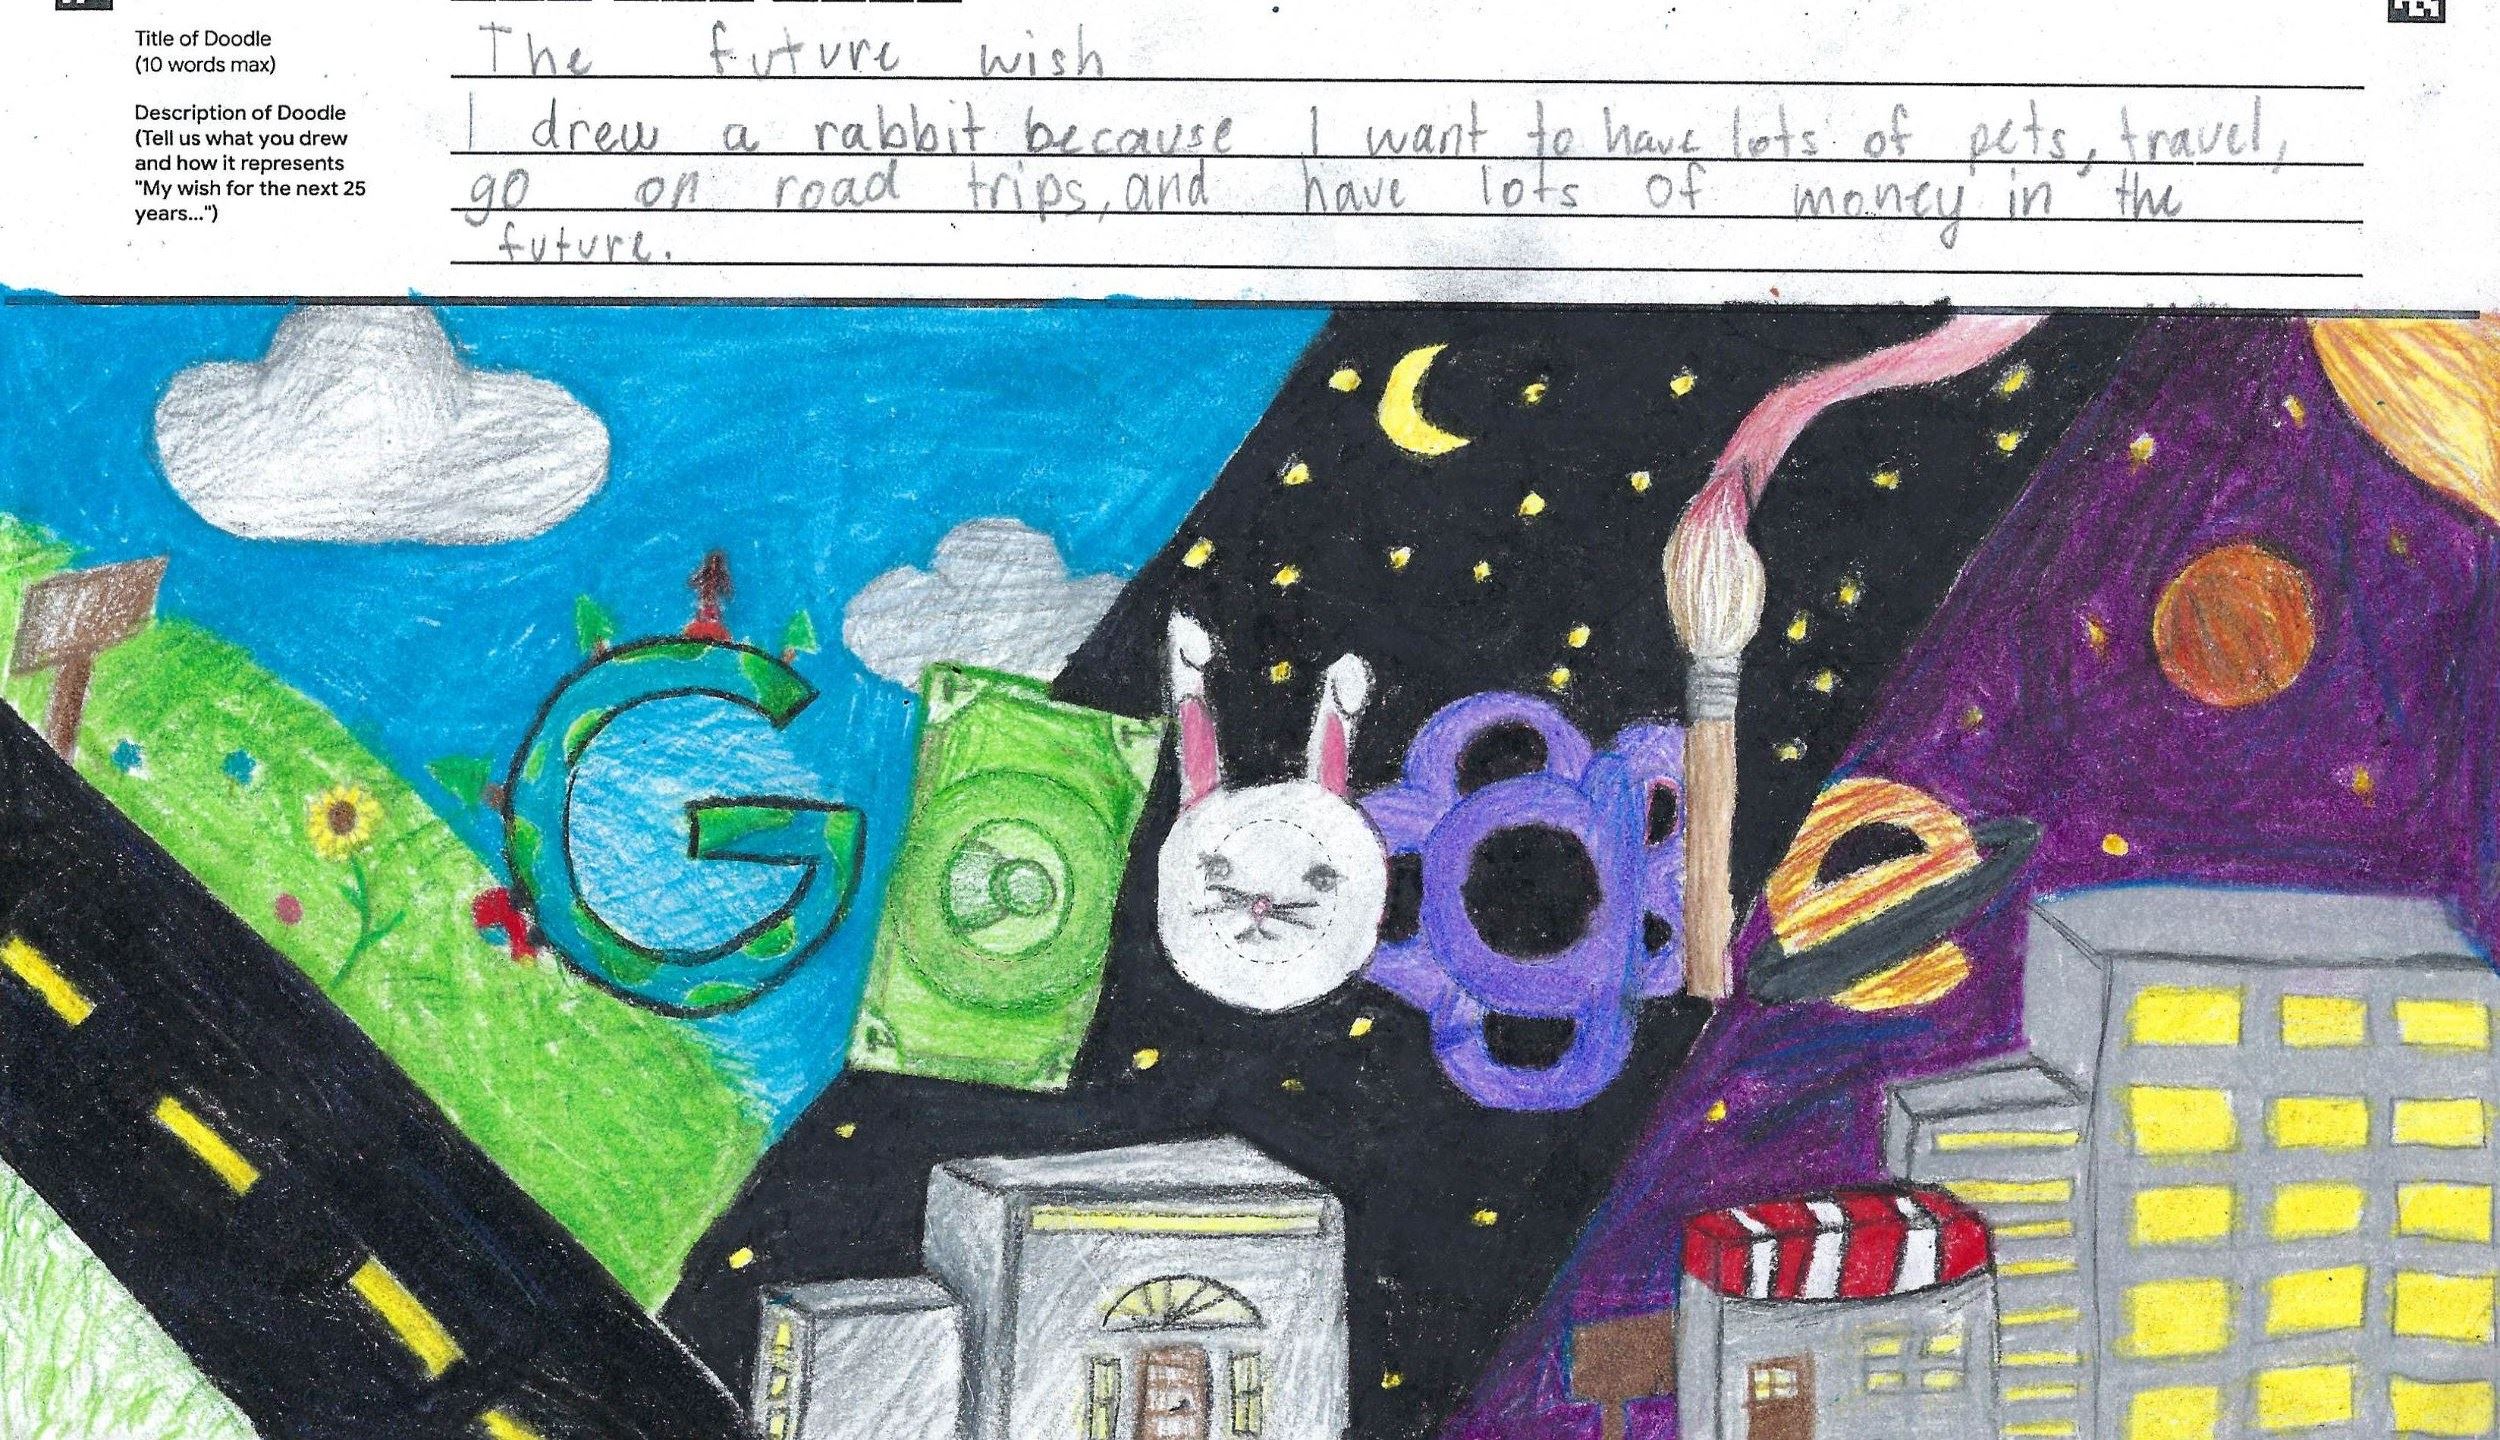 Title of Doodle
(10 words max)
The future wish
Description of Doodle
(Tell us what you drew
and how it represents
"My wish for the next 25
years...")
I drew a rabbit because I want to have lots of pets, travel,
go on road trips, and have lots of money in the
future.
Google